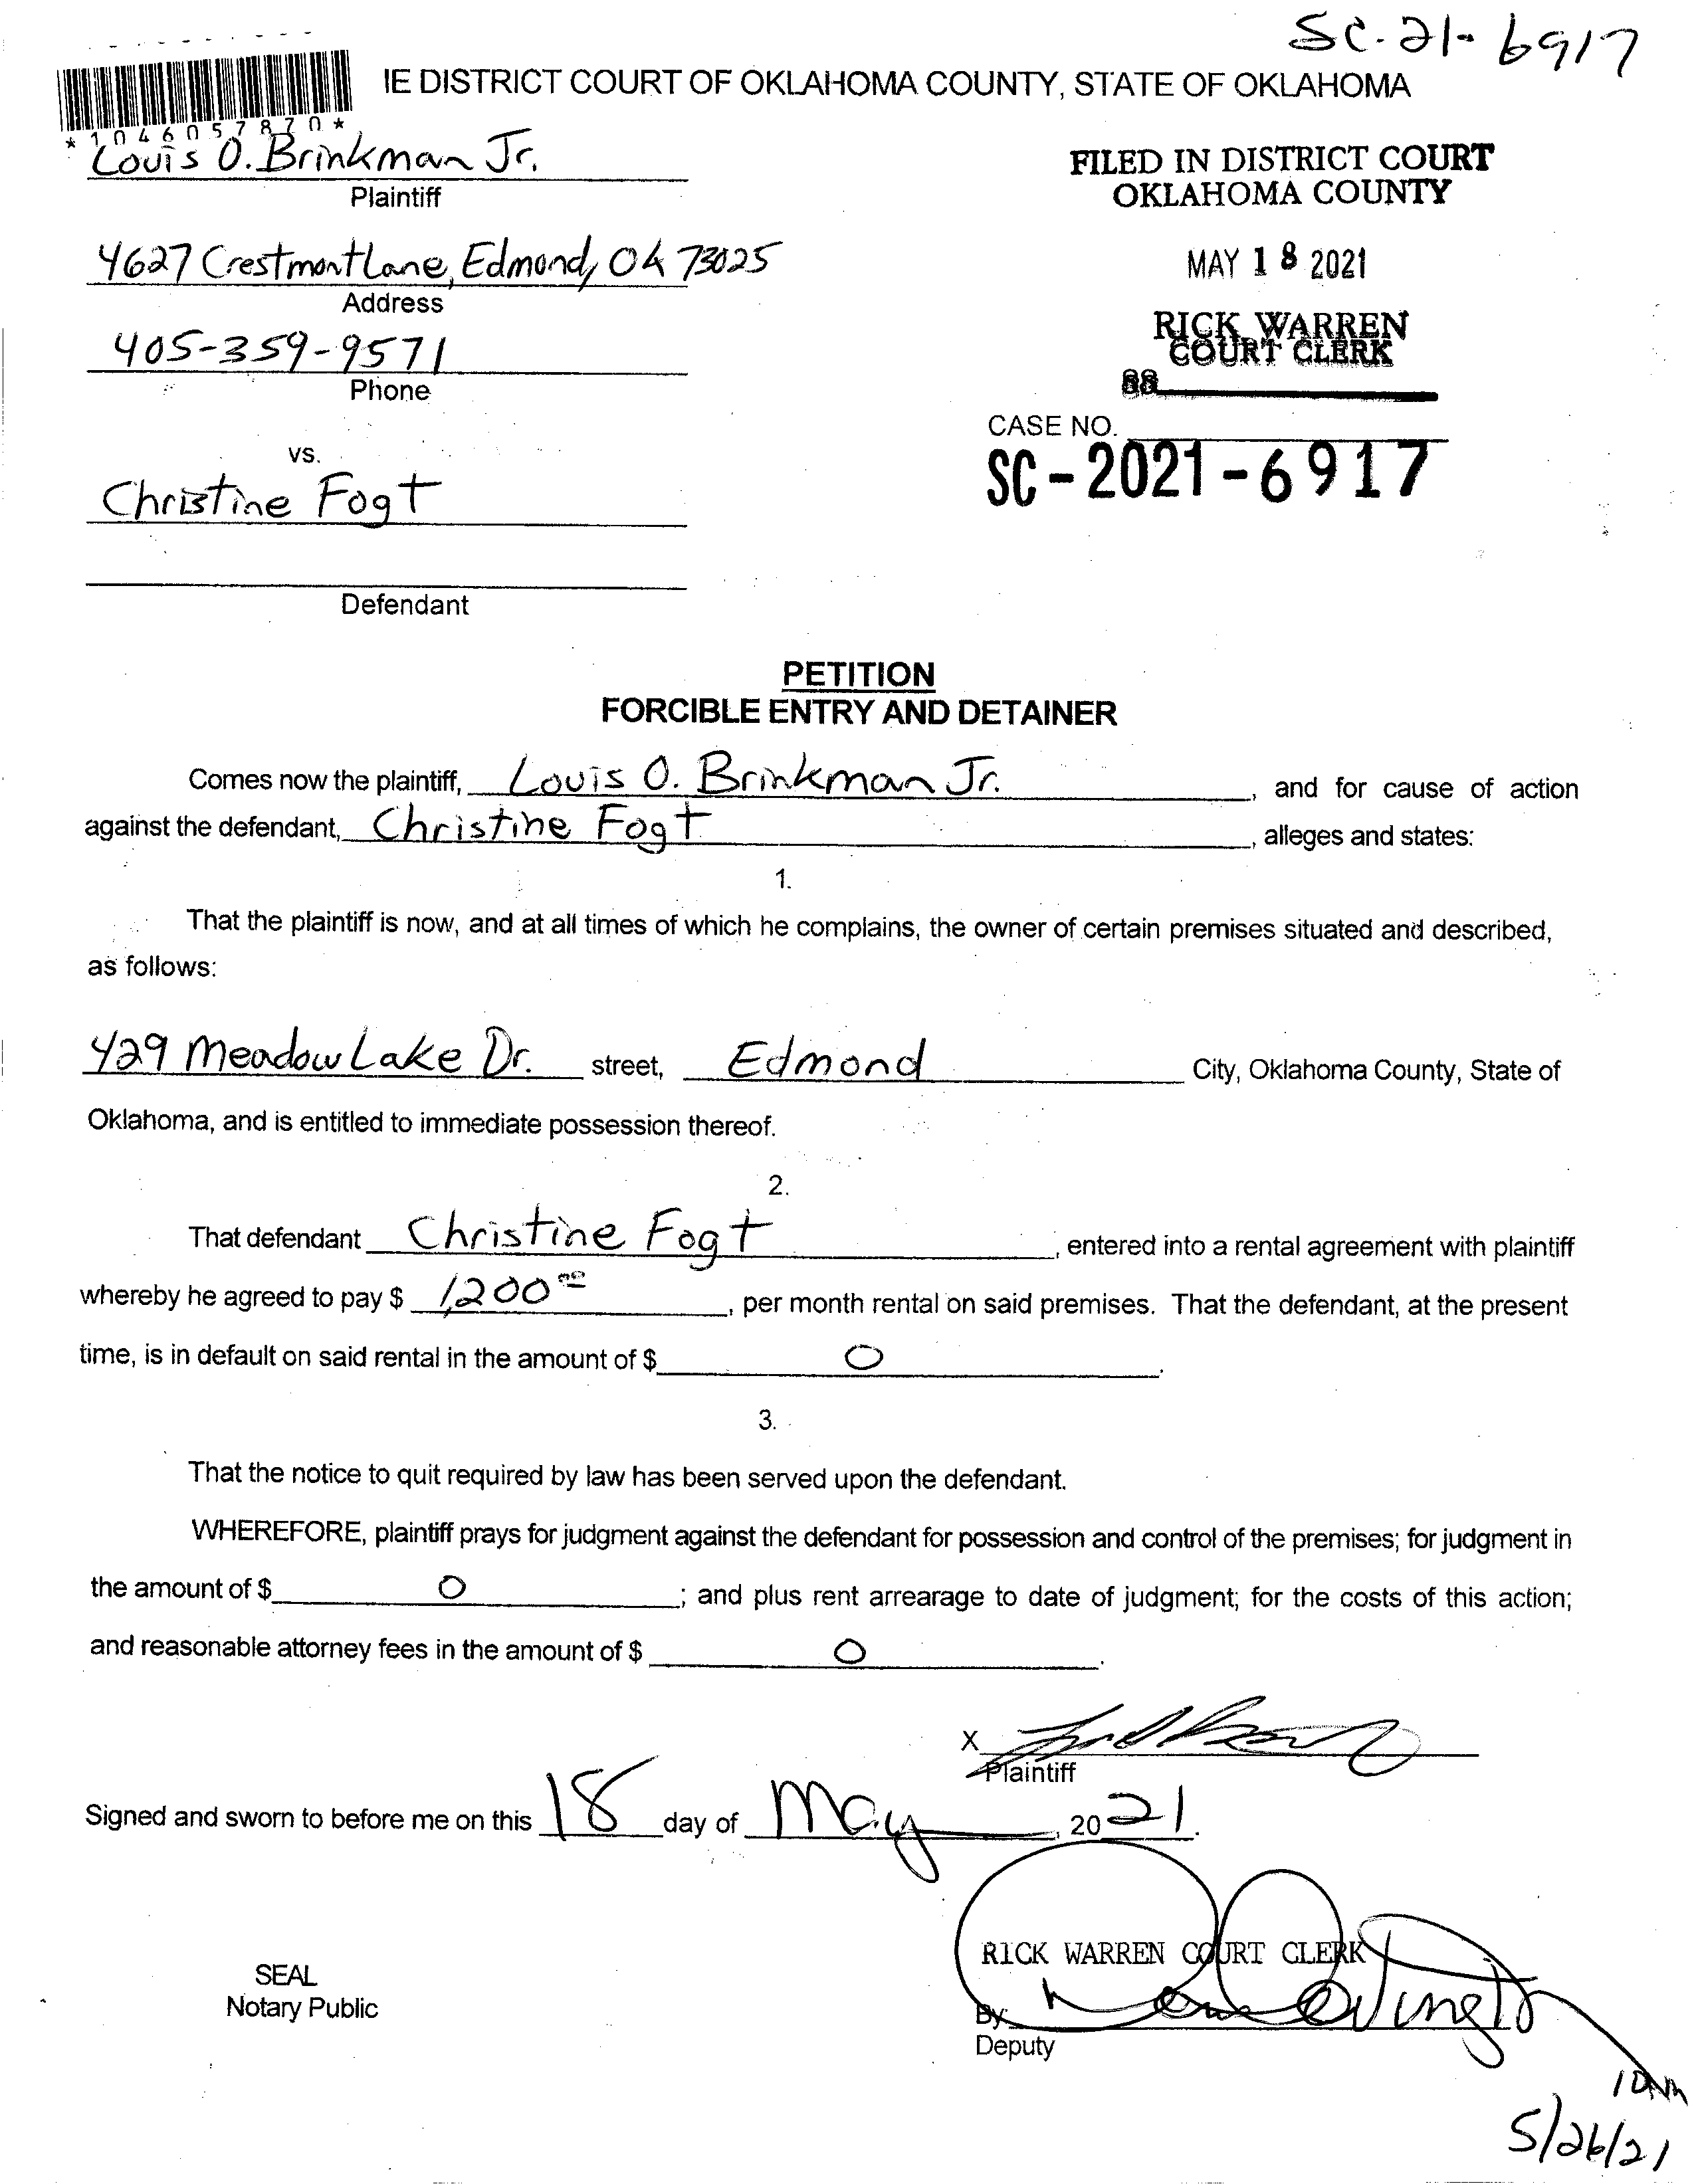 SC-21-6917
IE DISTRICT COURT OF OKLAHOMA COUNTY, STATE OF OKLAHOMA
*1046057870*
Louis O. Brinkman Jr.
Plaintiff
4627 Crestmont Lane, Edmond, OK 73025
Address
405-359-9571
Phone
vs.
Christine Fogt
Defendant
FILED IN DISTRICT COURT
OKLAHOMA COUNTY
MAY 18 2021
RICK WARREN
COURT CLERK
88
CASE NO.
SC-2021-6917
PETITION
FORCIBLE ENTRY AND DETAINER
Comes now the plaintiff, Louis O. Brinkman Jr., and for cause of action
against the defendant, Christine Fogt, alleges and states:
1.
That the plaintiff is now, and at all times of which he complains, the owner of certain premises situated and described,
as follows:
429 Meadow Lake Dr. street, Edmond City, Oklahoma County, State of
Oklahoma, and is entitled to immediate possession thereof.
2.
That defendant Christine Fogt, entered into a rental agreement with plaintiff
whereby he agreed to pay $ 1,200 00, per month rental on said premises. That the defendant, at the present
time, is in default on said rental in the amount of $ 0.
3.
That the notice to quit required by law has been served upon the defendant.
WHEREFORE, plaintiff prays for judgment against the defendant for possession and control of the premises; for judgment in
the amount of $ 0; and plus rent arrearage to date of judgment; for the costs of this action;
and reasonable attorney fees in the amount of $ 0.
X
Plaintiff
Signed and sworn to before me on this 18 day of May, 2021.
RICK WARREN COURT CLERK
SEAL
Notary Public
By:
Deputy
10am
5/26/21